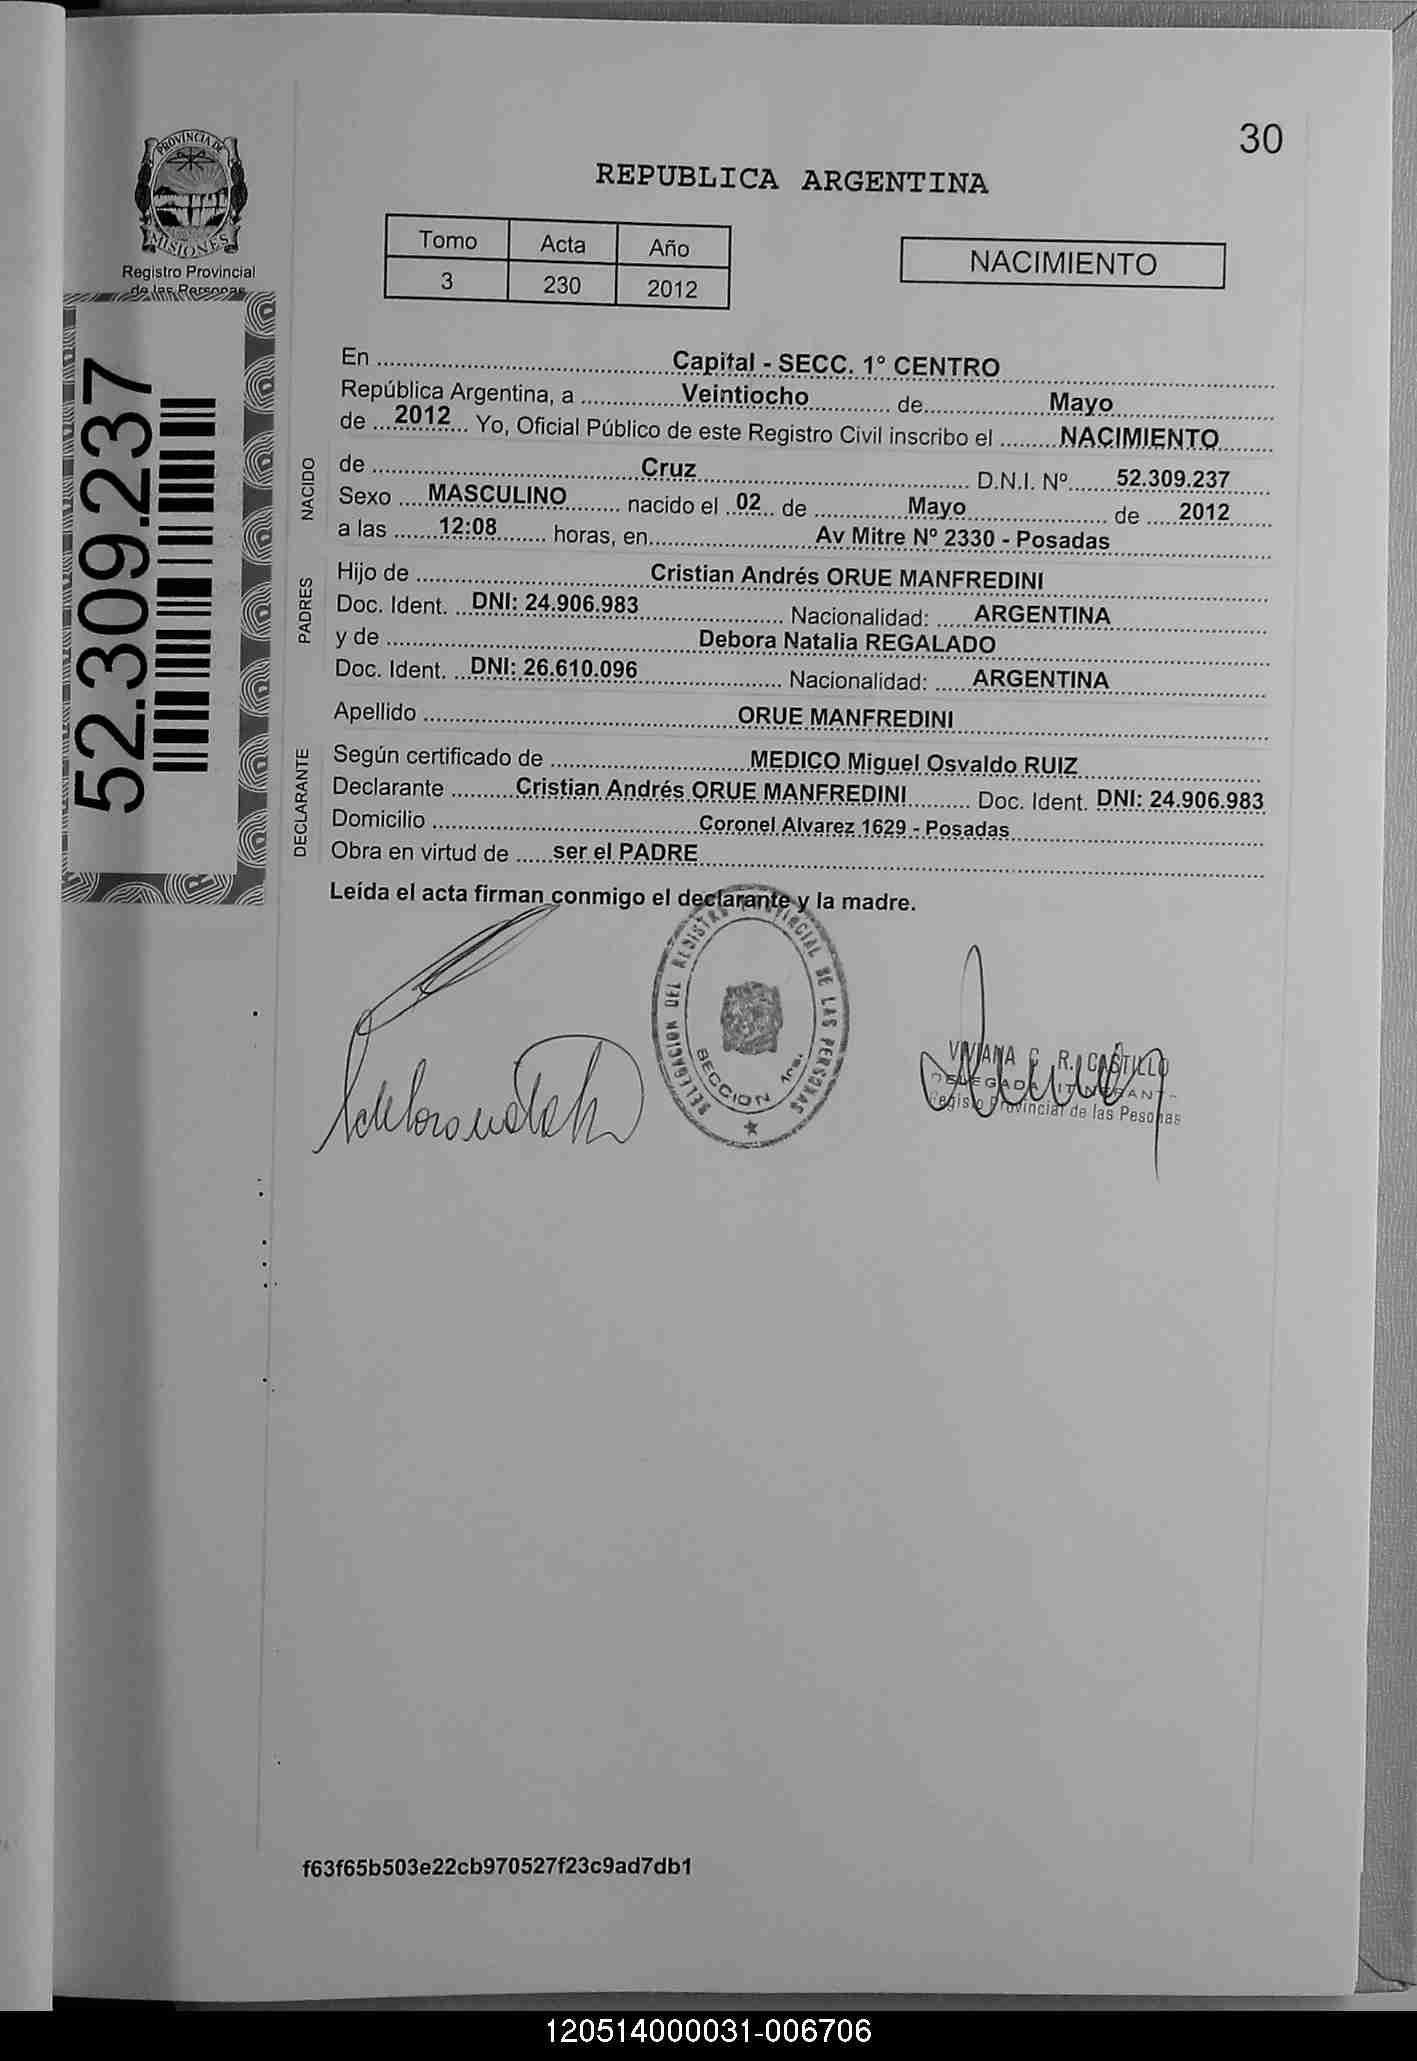 30
PROVINCIA DE
MISIONES
Registro Provincial
de las Personas
REPUBLICA ARGENTINA
Tomo Acta Año
3 230 2012
NACIMIENTO
52.309.237
En ........ Capital - SECC. 1° CENTRO ........
República Argentina, a ........ Veintiocho ........ de ........ Mayo ........
de ... 2012 ... Yo, Oficial Público de este Registro Civil inscribo el ........ NACIMIENTO ........
NACIDO
de ........ Cruz ........ D.N.I. Nº ........ 52.309.237 ........
Sexo .... MASCULINO ........ nacido el .. 02 .. de ........ Mayo ........ de ..... 2012 ......
a las ....... 12:08 ........ horas, en ........ Av Mitre Nº 2330 - Posadas ........
PADRES
Hijo de ........ Cristian Andrés ORUE MANFREDINI ........
Doc. Ident. ... DNI: 24.906.983 ........ Nacionalidad: ..... ARGENTINA ........
y de ........ Debora Natalia REGALADO ........
Doc. Ident. ... DNI: 26.610.096 ........ Nacionalidad: ..... ARGENTINA ........
Apellido ........ ORUE MANFREDINI ........
DECLARANTE
Según certificado de ........ MEDICO Miguel Osvaldo RUIZ ........
Declarante ........ Cristian Andrés ORUE MANFREDINI ........ Doc. Ident. DNI: 24.906.983
Domicilio ........ Coronel Alvarez 1629 - Posadas ........
Obra en virtud de ..... ser el PADRE ........
Leída el acta firman conmigo el declarante y la madre.
DELEGACION DEL REGISTRO PROVINCIAL DE LAS PERSONAS
SECCION 1ra.
VIVIANA C. R. CASTILLO
DELEGADA ITINERANTE
Registo Provincial de las Pesonas
f63f65b503e22cb970527f23c9ad7db1
120514000031-006706